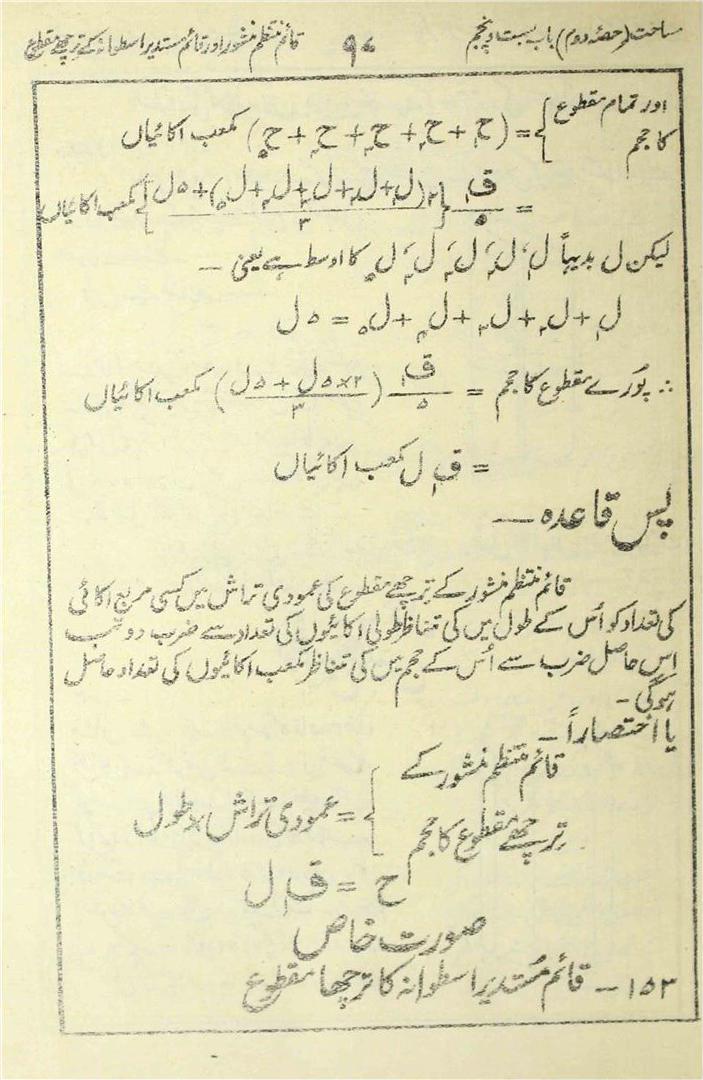 مساحت (حصۂ دوم) باب بست و پنجم ۹۷ قائم منتظم منشور اور قائم مستدیر اسطوانہ کے ترچھے مقطوع
اور تمام مقطوع کا حجم } = (ح₁ + ح₂ + ح₃ + ح₄ + ح₅) مکعب اکائیاں
= ق₁/۵ {(۲(ل₁+ل₂+ل₃+ل₴+ل₅)+۵ل)/۳} مکعب اکائیاں
لیکن ل بدیہاً ل₁، ل₂، ل₃، ل₄، ل₅ کا اوسط ہے یعنی —
ل₁ + ل₂ + ل₃ + ل₄ + ل₅ = ۵ ل
∴ پورے مقطوع کا حجم = ق₁/۵ (۲×۵ل + ۵ل / ۳) مکعب اکائیاں
= ق₁ ل مکعب اکائیاں
پس قاعدہ —
قائم منتظم منشور کے ترچھے مقطوع کی عمودی تراش میں کسی مربع اکائی
کی تعداد کو اُس کے طول میں کی متناظر طولی اکائیوں کی تعداد سے ضرب دو تب
اس حاصل ضرب سے اُس کے حجم میں کی متناظر مکعب اکائیوں کی تعداد حاصل
ہوگی -
یا اختصاراً -
قائم منتظم منشور کے
ترچھے مقطوع کا حجم } = عمودی تراش × طول
ح = ق₁ ل
صورت خاص
۱۵۳ - قائم مُستدیر اسطوانہ کا ترچھا مقطوع